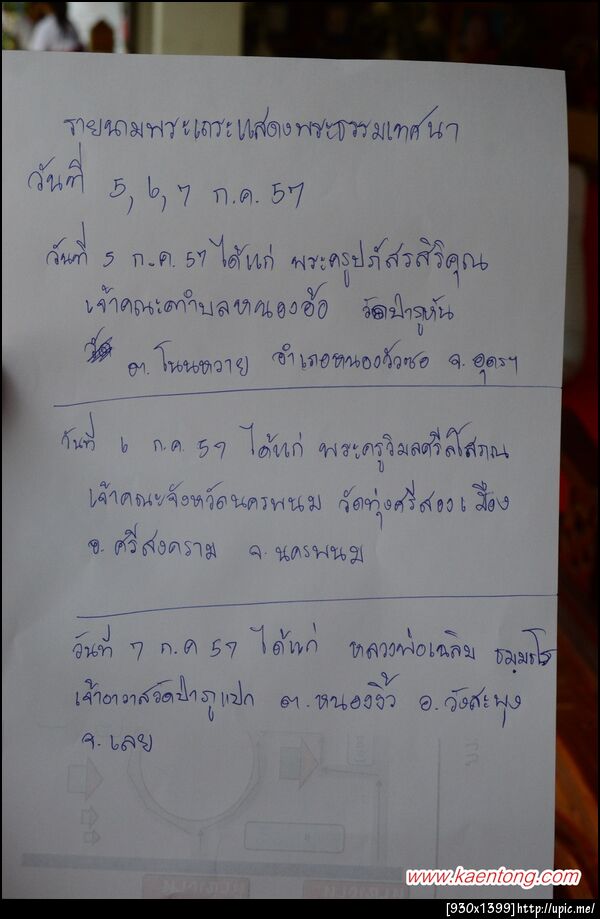 รายนามพระเถระแสดงพระธรรมเทศนา
วันที่ 5, 6, 7 ก.ค. 57
วันที่ 5 ก.ค. 57 ได้แก่ พระครูปภัสรสิริคุณ
เจ้าคณะตำบลหนองอ้อ วัดป่าภูหัน
ต. โนนหวาย อำเภอหนองวัวซอ จ. อุดรฯ
วันที่ 6 ก.ค. 57 ได้แก่ พระครูวิมลศรีลโสภณ
เจ้าคณะจังหวัดนครพนม วัดทุ่งศรีสองเมือง
อ. ศรีสงคราม จ. นครพนม
วันที่ 7 ก.ค 57 ได้แก่ หลวงพ่อเฉลิม ธมฺมธโร
เจ้าอาวาสวัดป่าภูแปก ต. หนองงิ้ว อ. วังสะพุง
จ. เลย
www.kaentong.com
[930x1399]http://upic.me/